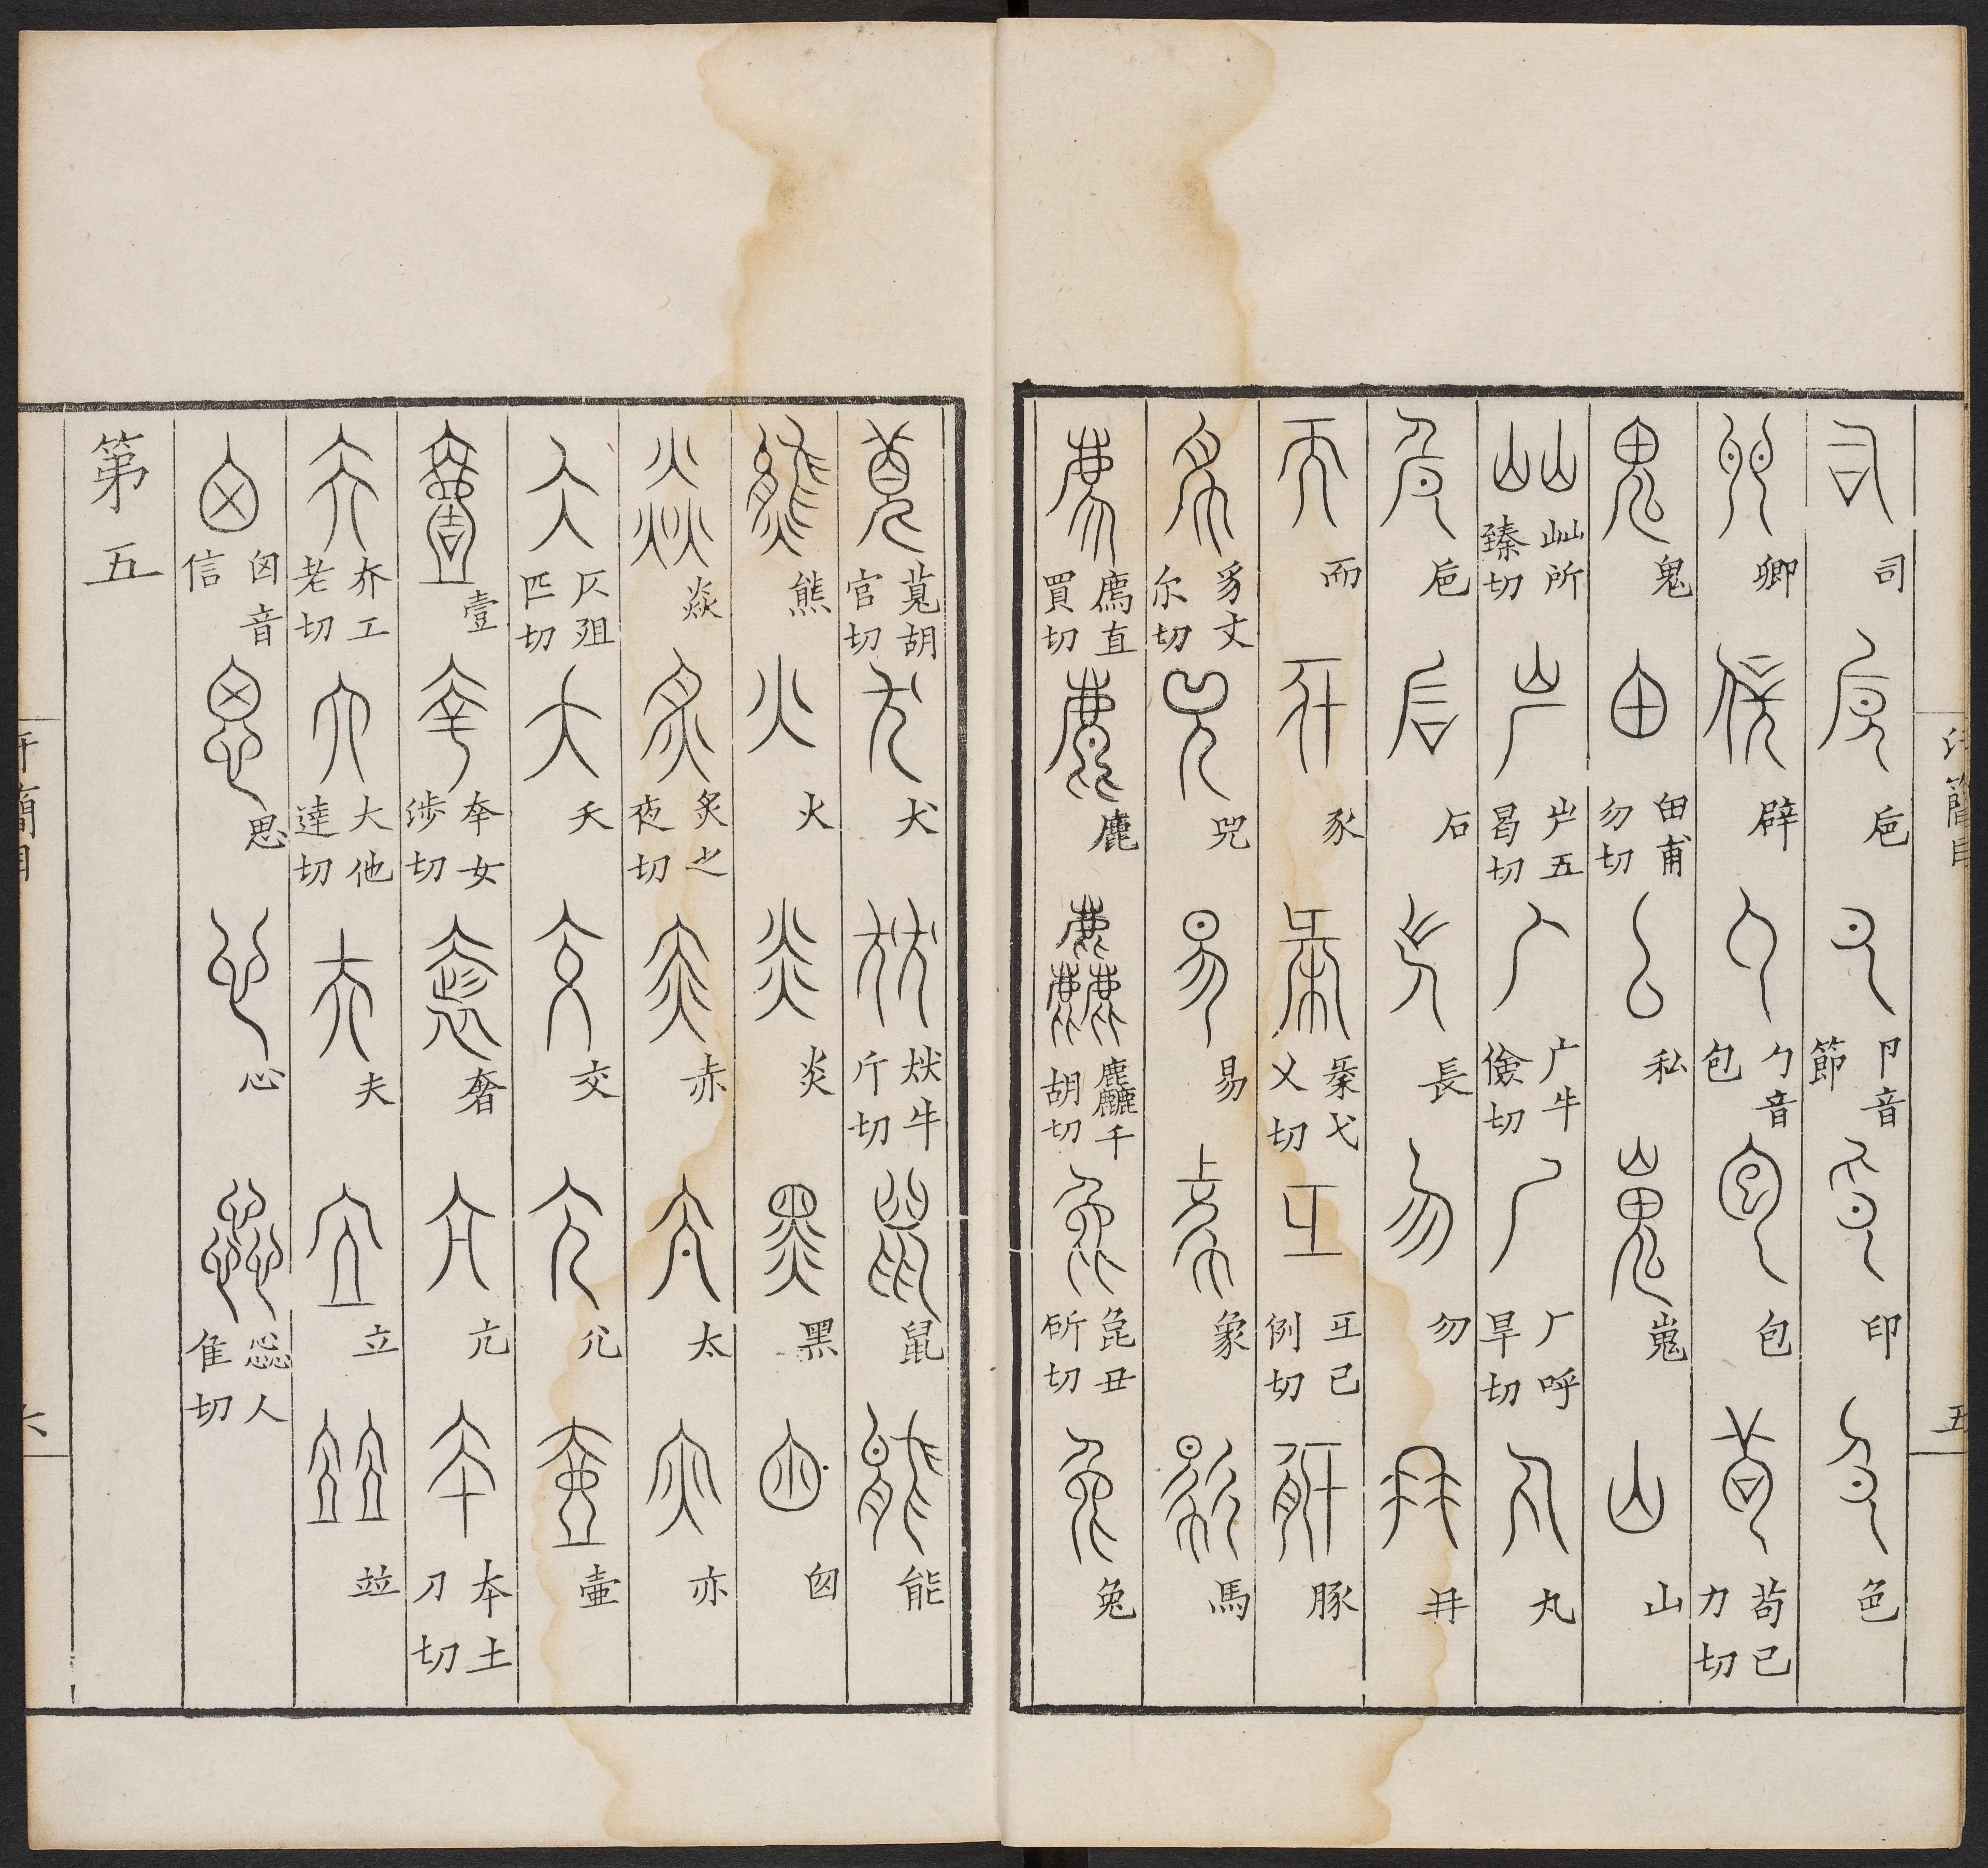 司 卮 卪音節 印 色
卿 辟 勹音包 包 茍己力切
鬼 甶甫勿切 私 嵬 山
屾所臻切 屵五曷切 广牛儉切 厂呼旱切 丸
危 石 長 勿 冄
而 豕 㣇弋乂切 彑己例切 豚
豸丈尔切 兕 易 象 馬
廌直買切 鹿 麤千胡切 㲋丑斫切 兔
萈胡官切 犬 㹜牛斤切 鼠 能
熊 火 炎 黑 囱
焱 炙之夜切 赤 太 亦
仄阻匹切 夭 交 尣 壷
壹 㚔女涉切 奢 亢 夲土刀切
夰工老切 大他達切 夫 立 竝
囟音信 思 心 惢人隹切
第五
汗簡目 五
汗簡目 六